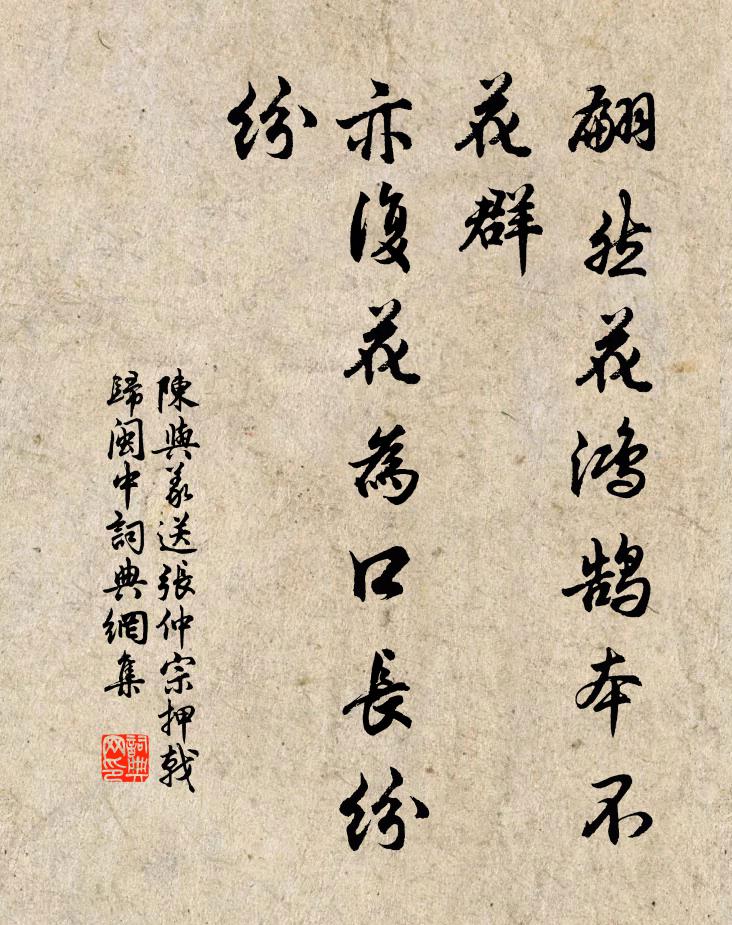 翩然花鴻鹄本不
花群
亦復花為口長紛
紛
陳與義送張仲宗押戟
歸閩中詞典網集
詞典
网印